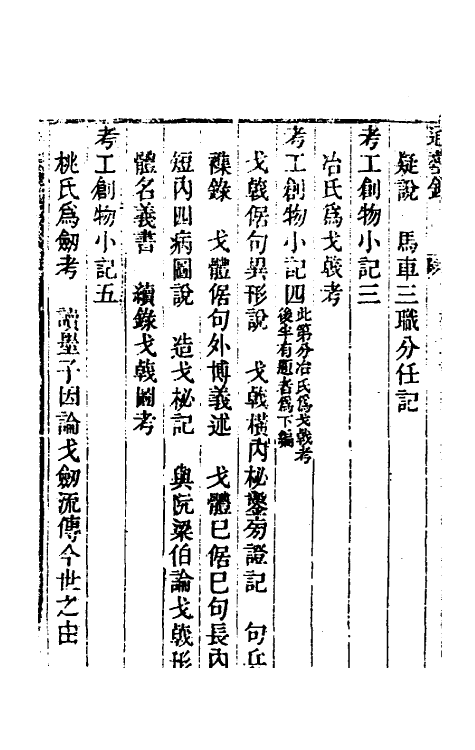 通藝錄
疑說　馬車三職分任記
考工創物小記三
冶氏爲戈戟考
考工創物小記四此第分冶氏爲戈戟考後半有題者爲下編
戈戟倨句異形說　戈戟橫內柲鑿旁證記　句兵
襍錄　戈體倨句外博義述　戈體已倨已句長內
短內四病圖說　造戈柲記　與阮梁伯論戈戟形
體名義書　續錄戈戟圖考
考工創物小記五
桃氏爲劒考　讀墨子因論戈劒流傳今世之由